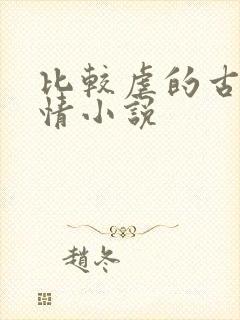 比較虐的古
情小說
趙冬